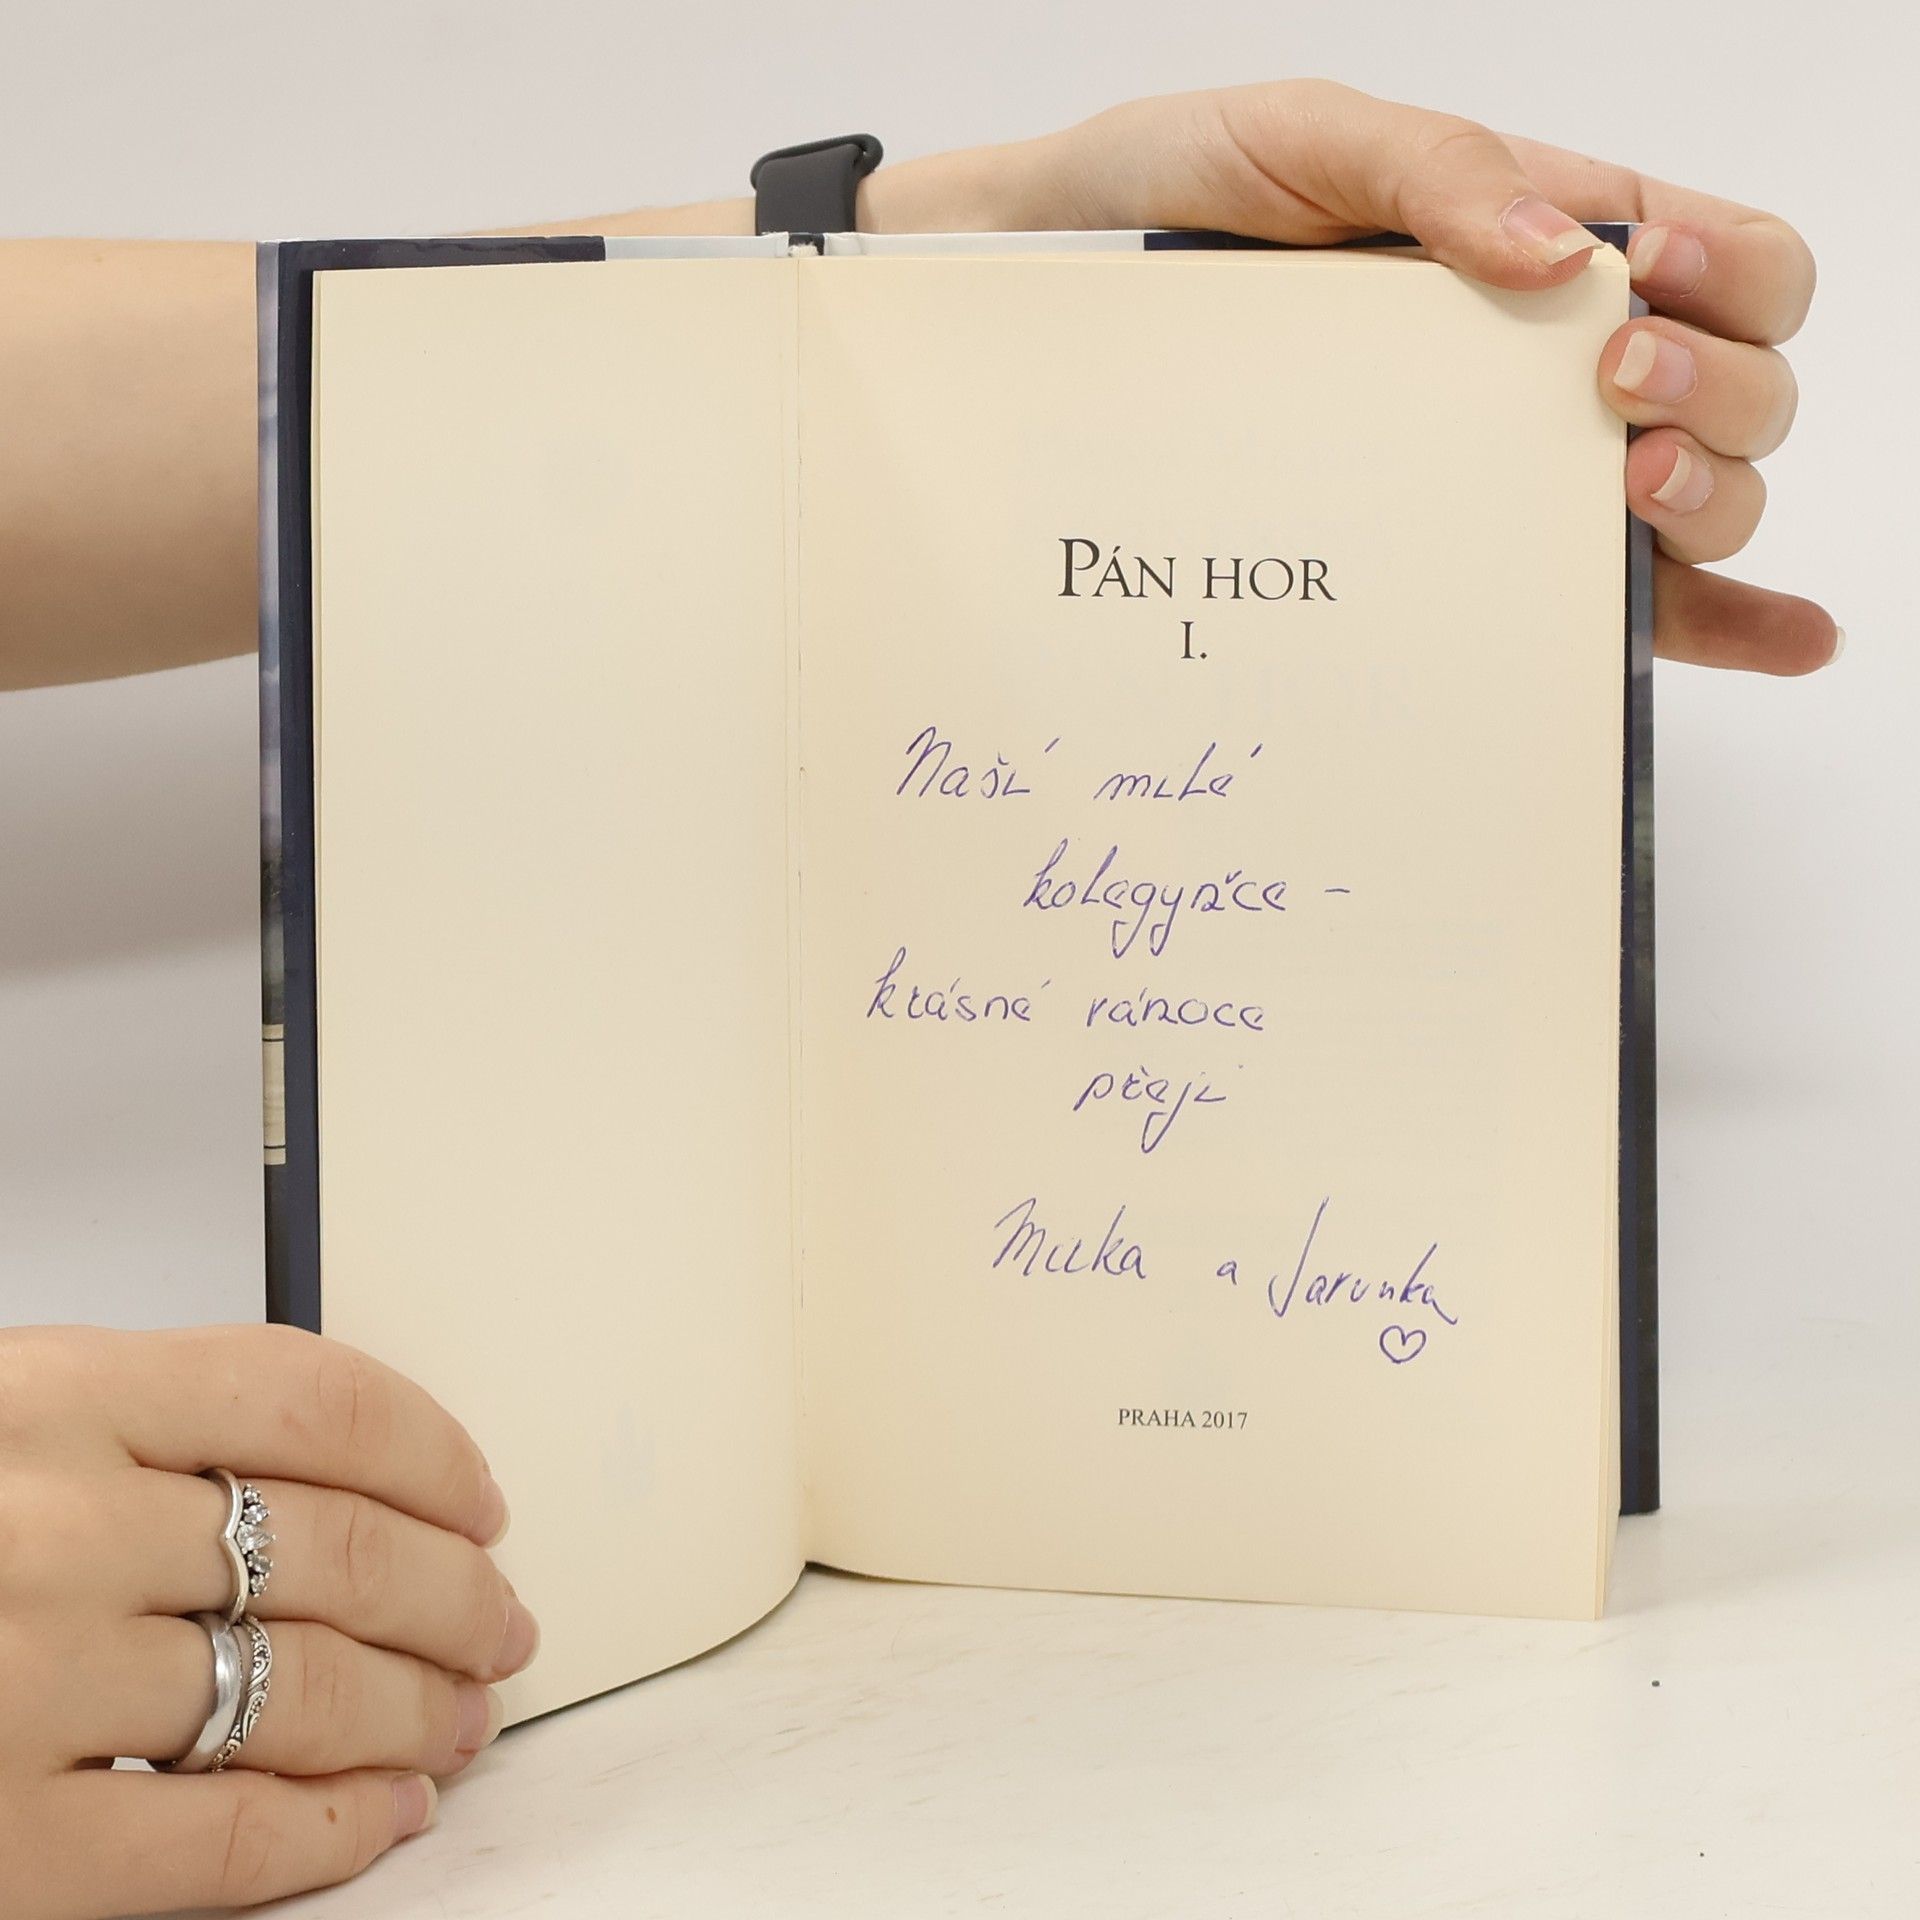 PÁN HOR
I.
Naší milé
kolegyňce –
krásné vánoce
přejí
Milka a Jarunka
PRAHA 2017